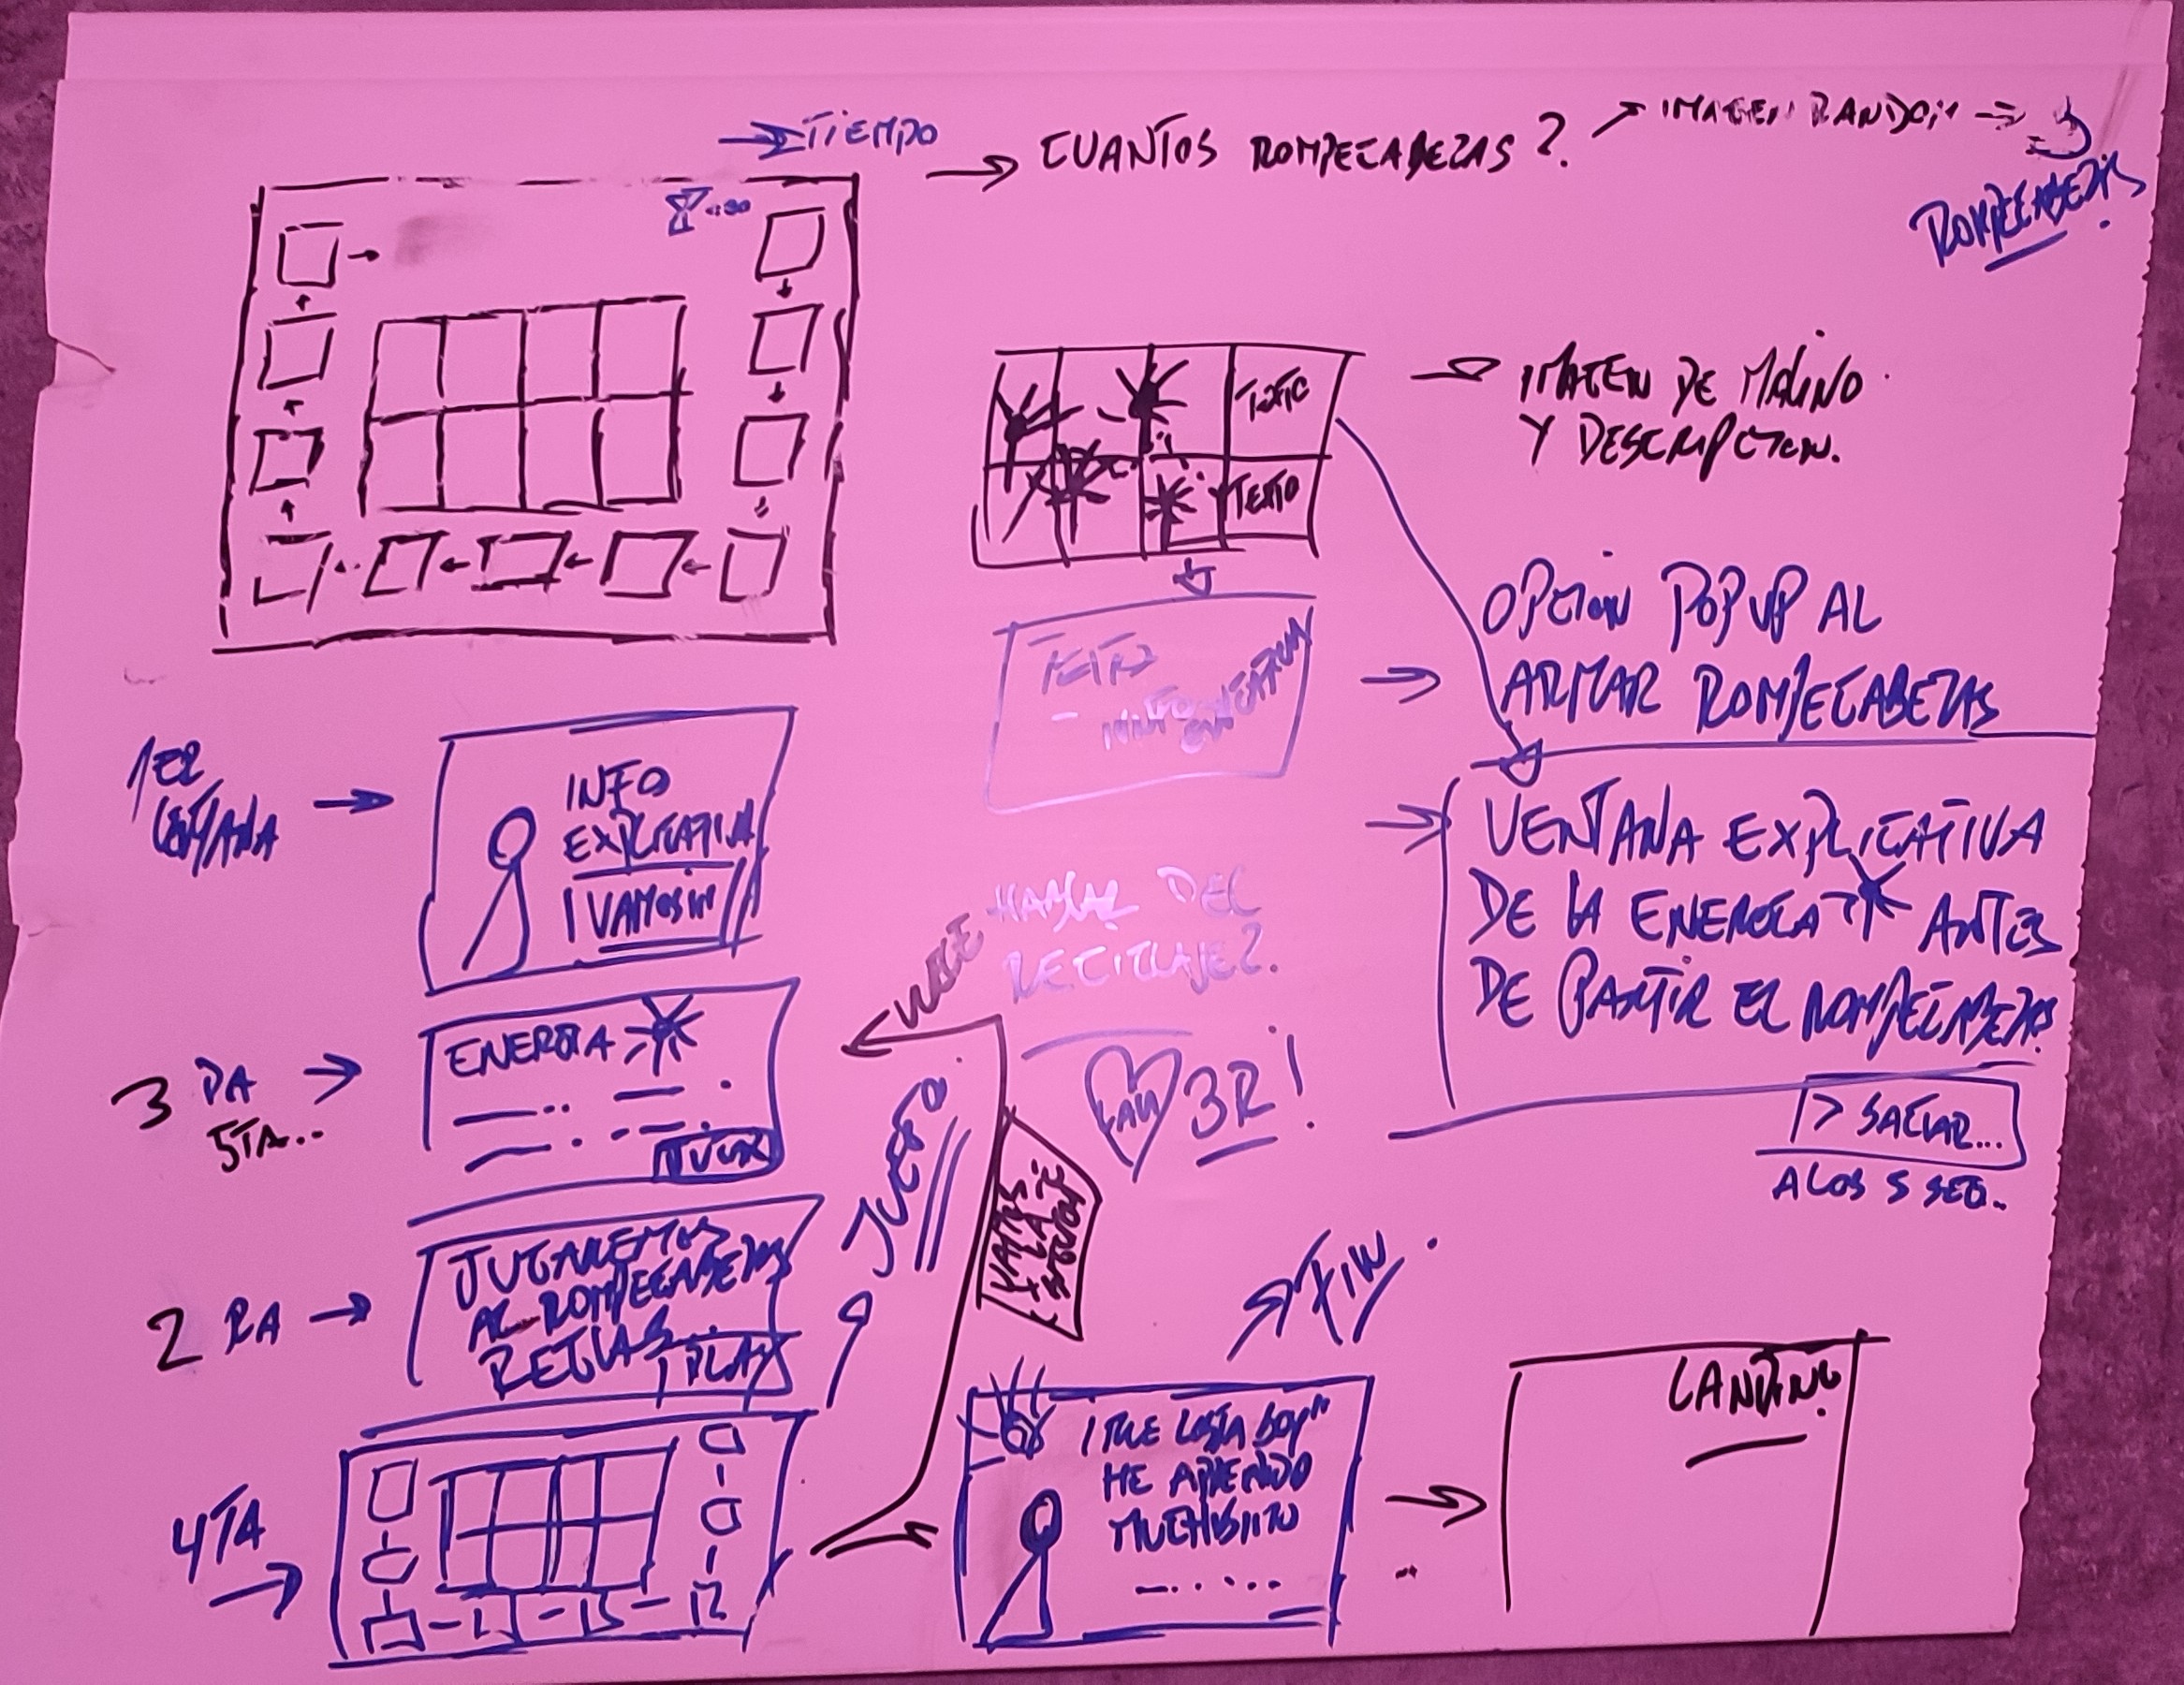 TIEMPO
CUANTOS ROMPECABEZAS?
IMAGEN RANDOM
3
ROMPECABEZAS
TEXTO
TEXTO
IMAGEN DE MOLINO
Y DESCRIPCION.
OPCION POPUP AL
ARMAR ROMPECABEZAS
VENTANA EXPLICATIVA
DE LA ENERGIA ANTES
DE PARTIR EL ROMPECABEZAS.
> SALTAR...
A LOS 5 SEG.
1ER
VENTANA
INFO
EXPLICATIVA
VAMOS!!!
HABLAR DEL
RECICLAJE?
3R!
3 DA
5TA...
ENERGIA
JUGAR
JUEGO
2 RA
JUGAREMOS
AL ROMPECABEZAS
REGLAS...
PLAY
FIN
4TA
HE APRENDIDO
MUCHISIMO
LANDING